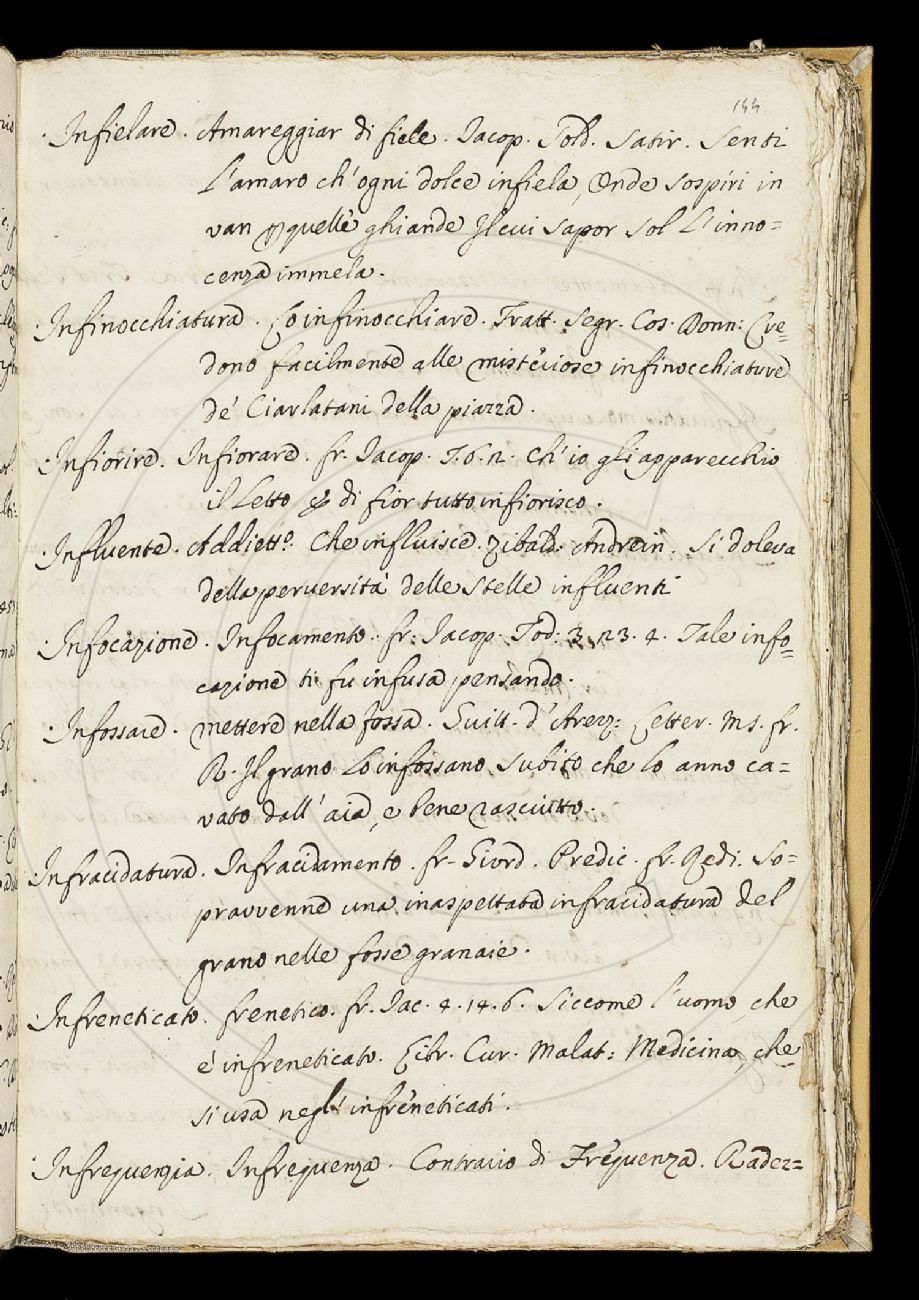 144
Infielare. Amareggiar di fiele. Iacop. Sold. Satir. Senti
L'amaro ch'ogni dolce infiela, Onde sospiri in
van quelle ghiande Il cui sapor sol L'inno=
cenza immela.
Infinocchiatura. Lo infinocchiare. Tratt. Segr. Cos. Donn: Cre=
dono facilmente alle misteriose infinocchiature
de' Ciarlatani della piazza.
Infiorire. Infiorare. fr. Iacop. T. 6. 12. Ch'io gli apparecchio
il Letto di fior tutto infiorisco.
Influente. Addietto. Che influisce. Zibald: Andrein. Si doleva
della perversità delle stelle influenti
Infocazione. Infocamento. fr: Iacop. Tod: 3. 23. 4. Tale info=
cazione ti fu infusa pensando.
Infossare. mettere nella fossa. Guitt. d'Arezz: Letter. Ms. fr.
R. Il grano Lo infossano subito che lo anno ca=
vato dall'aia, e bene rasciutto.
Infracidatura. Infracidamento. fr. Giord. Predic. fr. Redi. So=
pravvenne una inaspettata infracidatura del
grano nelle fosse granaie.
Infreneticato. frenetico. fr. Iac. 4. 14. 6. Siccome l'uomo che
e' infreneticato. Libr. Cur. Malat: Medicina, che
si usa negl'infreneticati.
Infrequenzia. Infrequenza. Contrario di Frequenza. Radez=